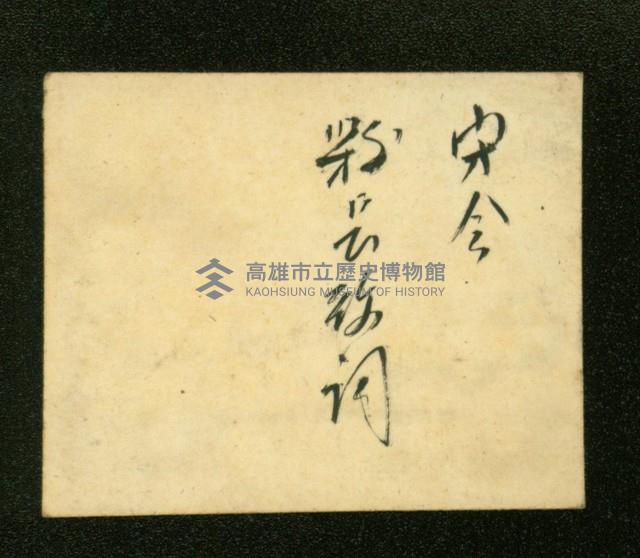 会
長致詞
高雄市立歷史博物館
KAOHSIUNG MUSEUM OF HISTORY